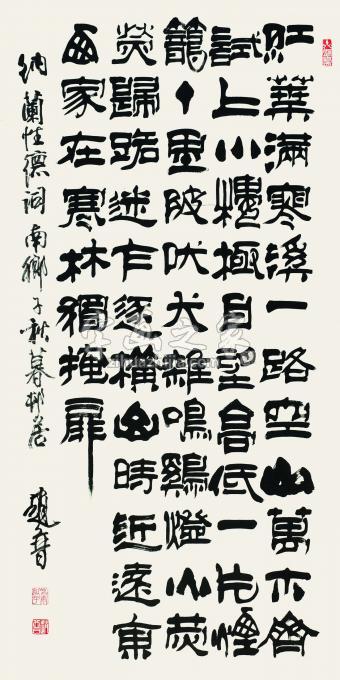 紅葉滿寒溪一路空山萬木齊
試上小樓極目望高低一片煙
籠十里陂吠犬雜鳴鷄燈火熒
熒歸路迷乍逐橫山時近遠東
西家在寒林獨掩扉
納蘭性德詞南鄉子秋暮邨居